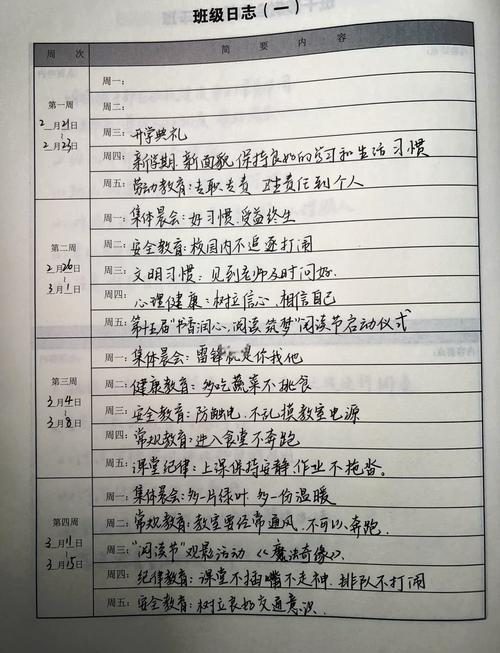 班级日志（一）
周 次 简 要 内 容
第一周
2月21日
~
2月23日
周一：
周二：
周三：开学典礼
周四：新学期，新面貌，保持良好的学习和生活习惯
周五：劳动教育：专职专责 责任到个人
第二周
2月26日
~
3月1日
周一：集体晨会：好习惯，受益终生
周二：安全教育：校园内不追逐打闹
周三：文明习惯：见到老师及时问好.
周四：心理健康：树立信心，相信自己
周五：第十五届"书香润心，阅读筑梦"阅读节启动仪式
第三周
3月4日
~
3月8日
周一：集体晨会：雷锋就是你我他
周二：健康教育：多吃蔬菜不挑食
周三：安全教育：防触电，不乱摸教室电源
周四：常规教育：进入食堂不奔跑
周五：课堂纪律：上课保持安静，作业不拖沓。
第四周
3月11日
~
3月15日
周一：集体晨会：多一片绿叶 多一份温暖
周二：常规教育：教室要经常通风，不可以奔跑.
周三："阅读节"观影活动《魔法奇缘》.
周四：纪律教育：课堂不插嘴不走神，排队不打闹
周五：安全教育：树立良好交通意识.